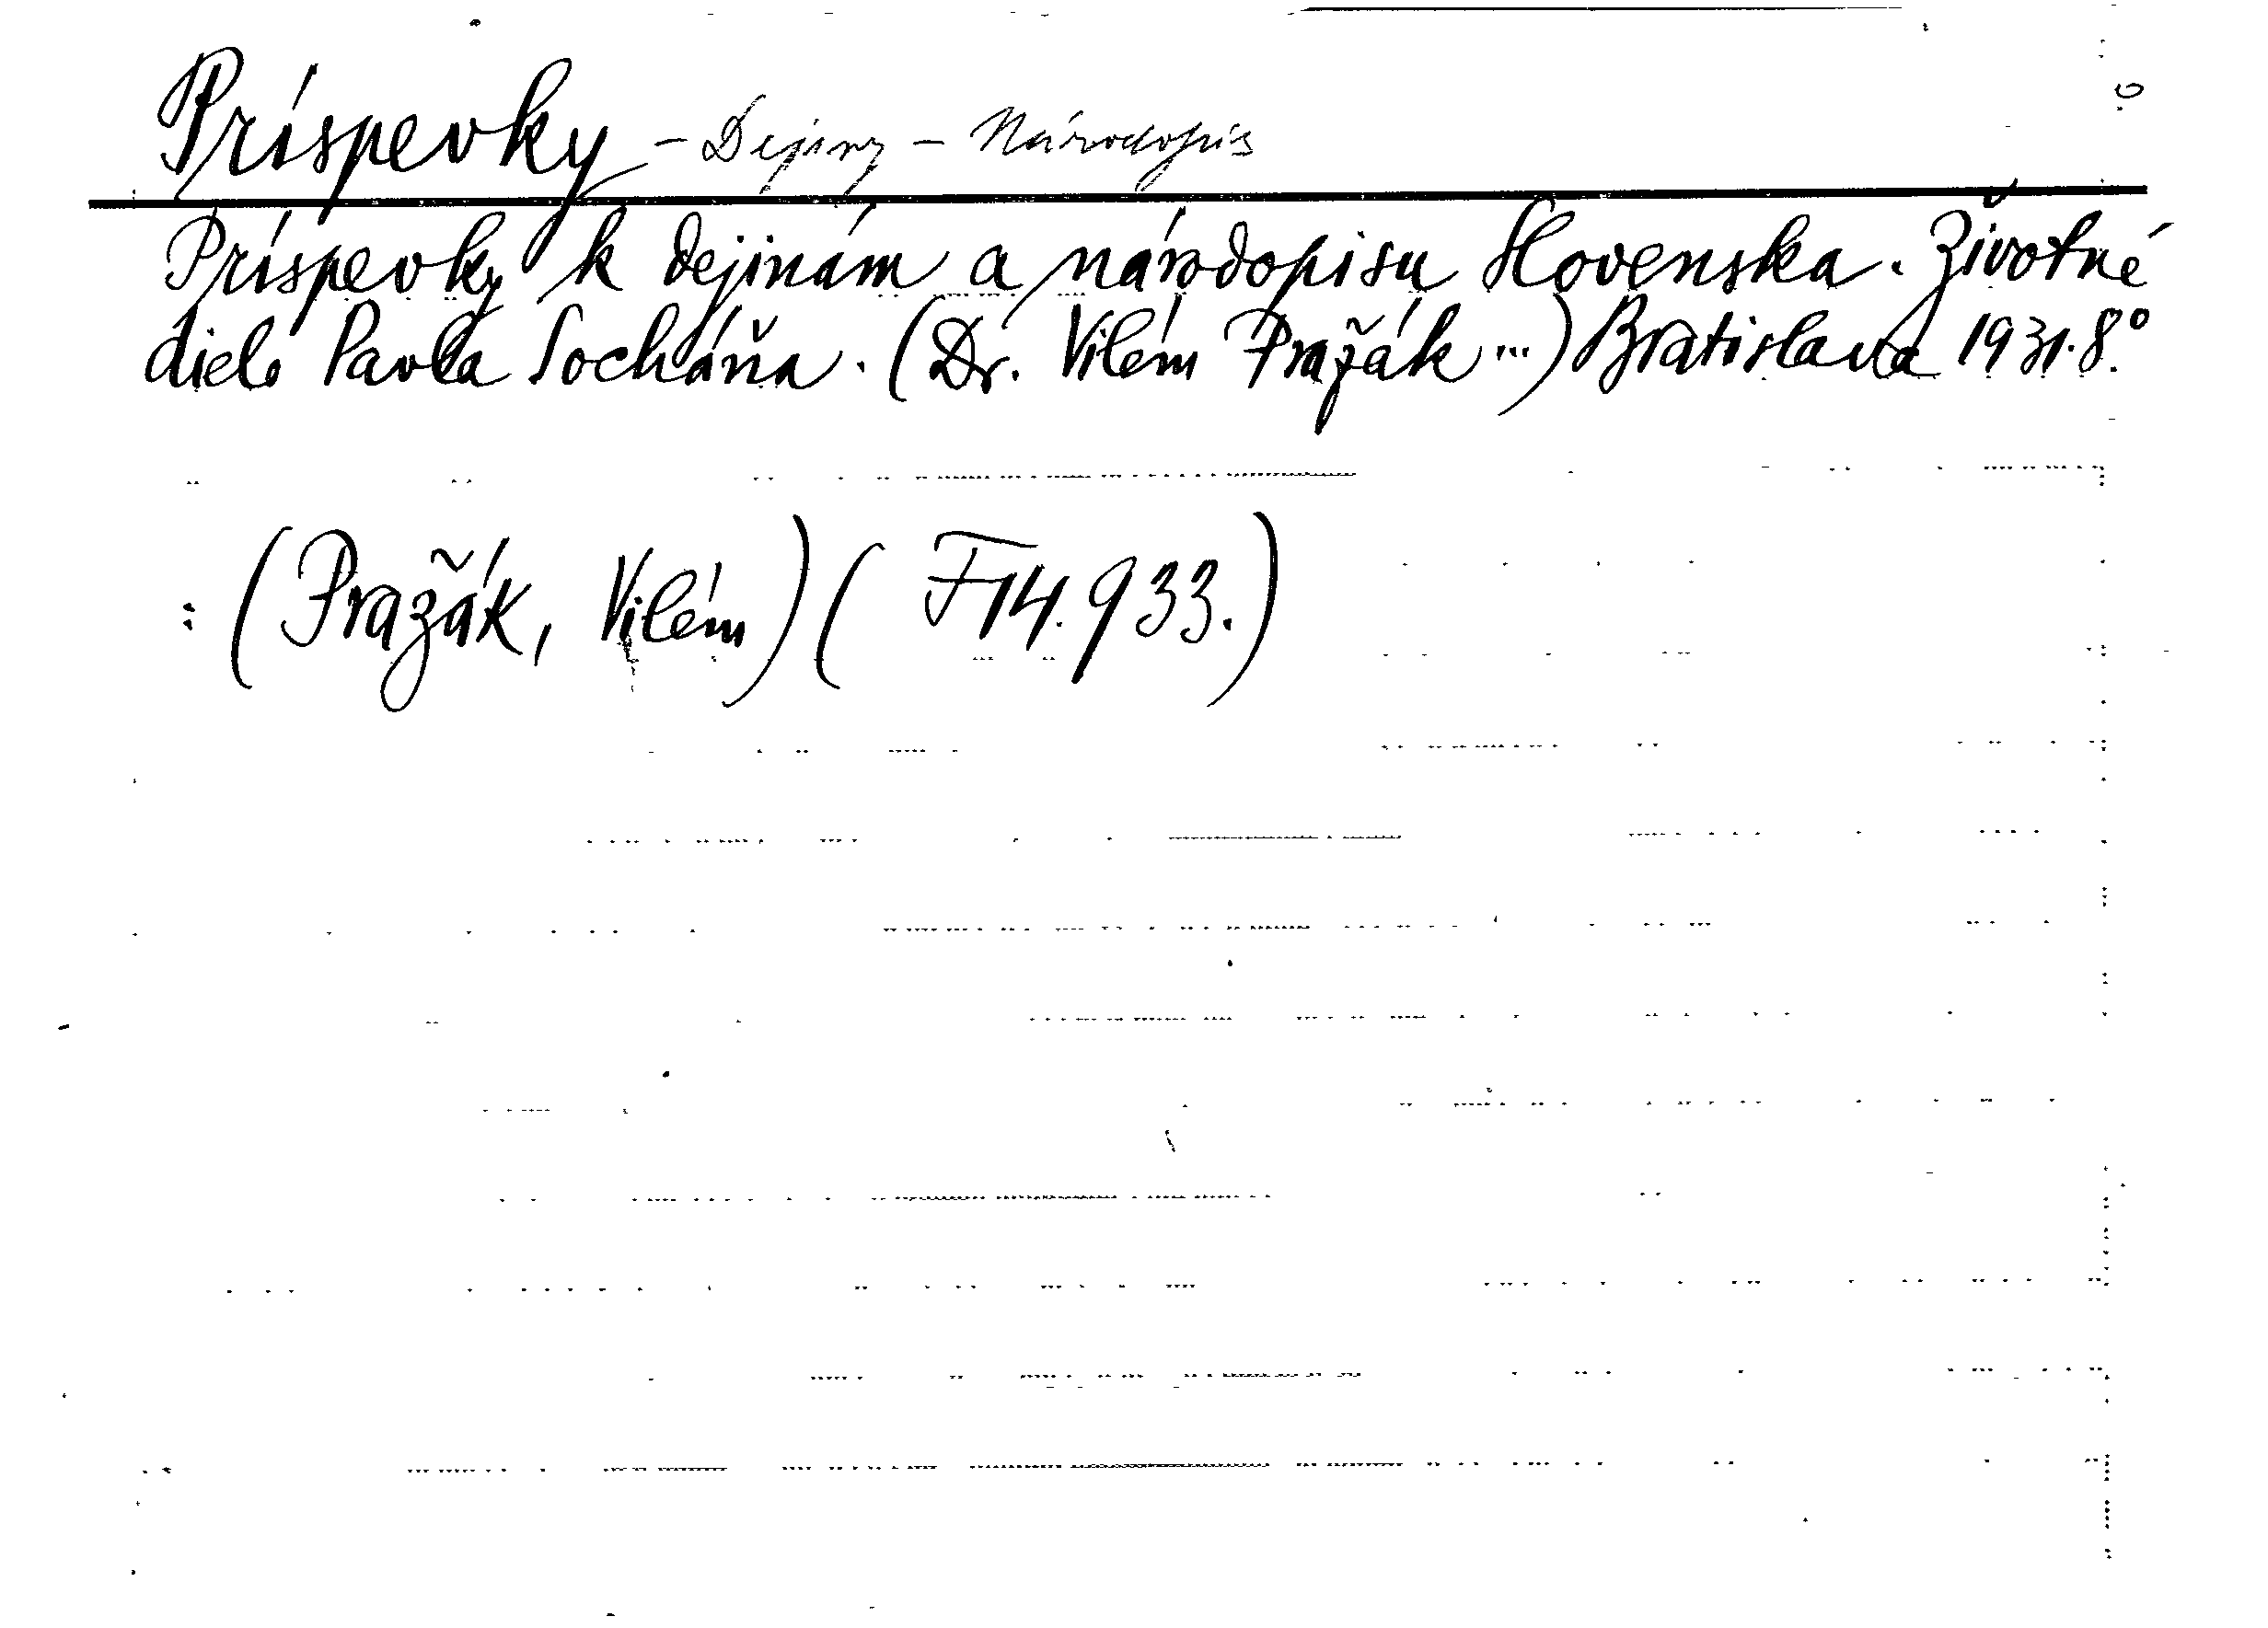 Príspevky - Dejiny - Národopis
Príspevky k dejinám a národopisu Slovenska. Životné
dielo Pavla Socháňa. (Dr. Vilém Pražák ...) Bratislava 1931. 8°.
: (Pražák, Vilém) ( F 14.933.)